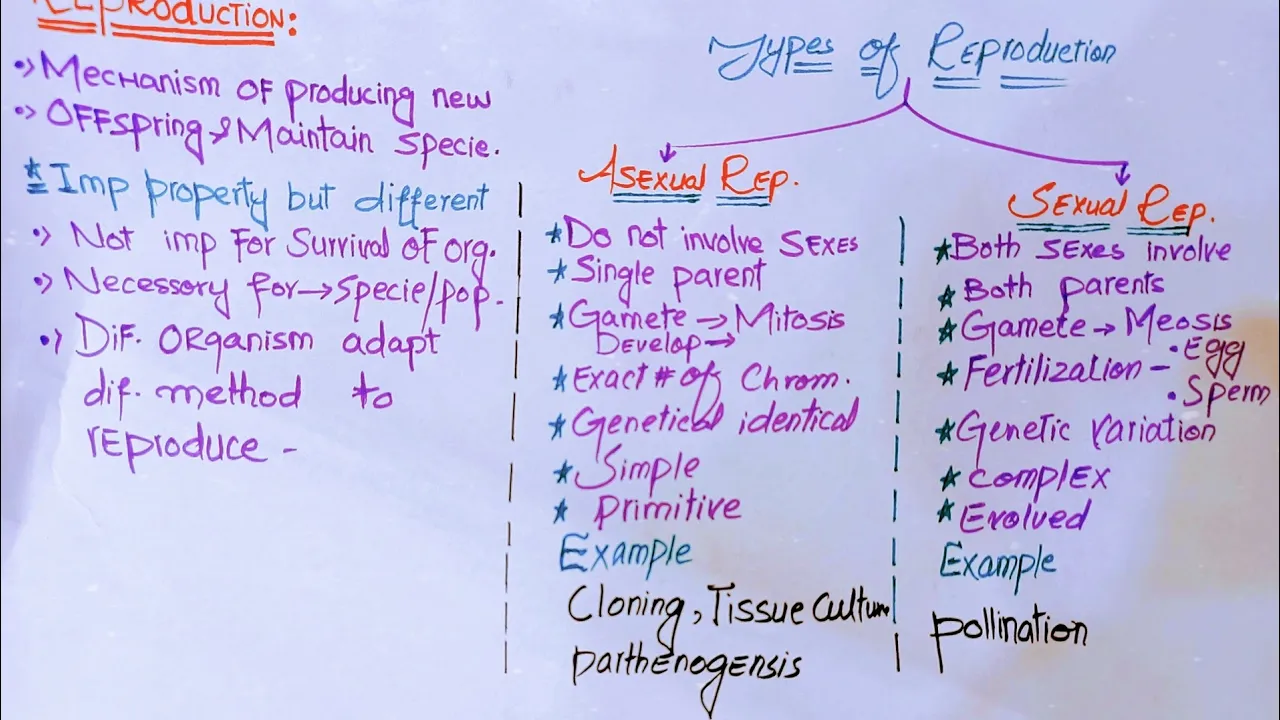 REPRODUCTION:
Mechanism of producing new
Offspring & Maintain specie.
* Imp property but different
Not imp for survival of org.
Necessary for → specie/pop.
Dif. organism adapt
dif. method to
reproduce -
Types of Reproduction
Asexual Rep.
* Do not involve sexes
* Single parent
* Gamete → Mitosis
Develop →
* Exact # of Chrom.
* Genetical identical
* Simple
* Primitive
Example
Cloning, Tissue Culture
Parthenogensis
Sexual Rep.
* Both sexes involve
* Both parents
* Gamete → Meosis
* Fertilization - • Egg
• Sperm
* Genetic variation
* Complex
* Evolved
Example
pollination